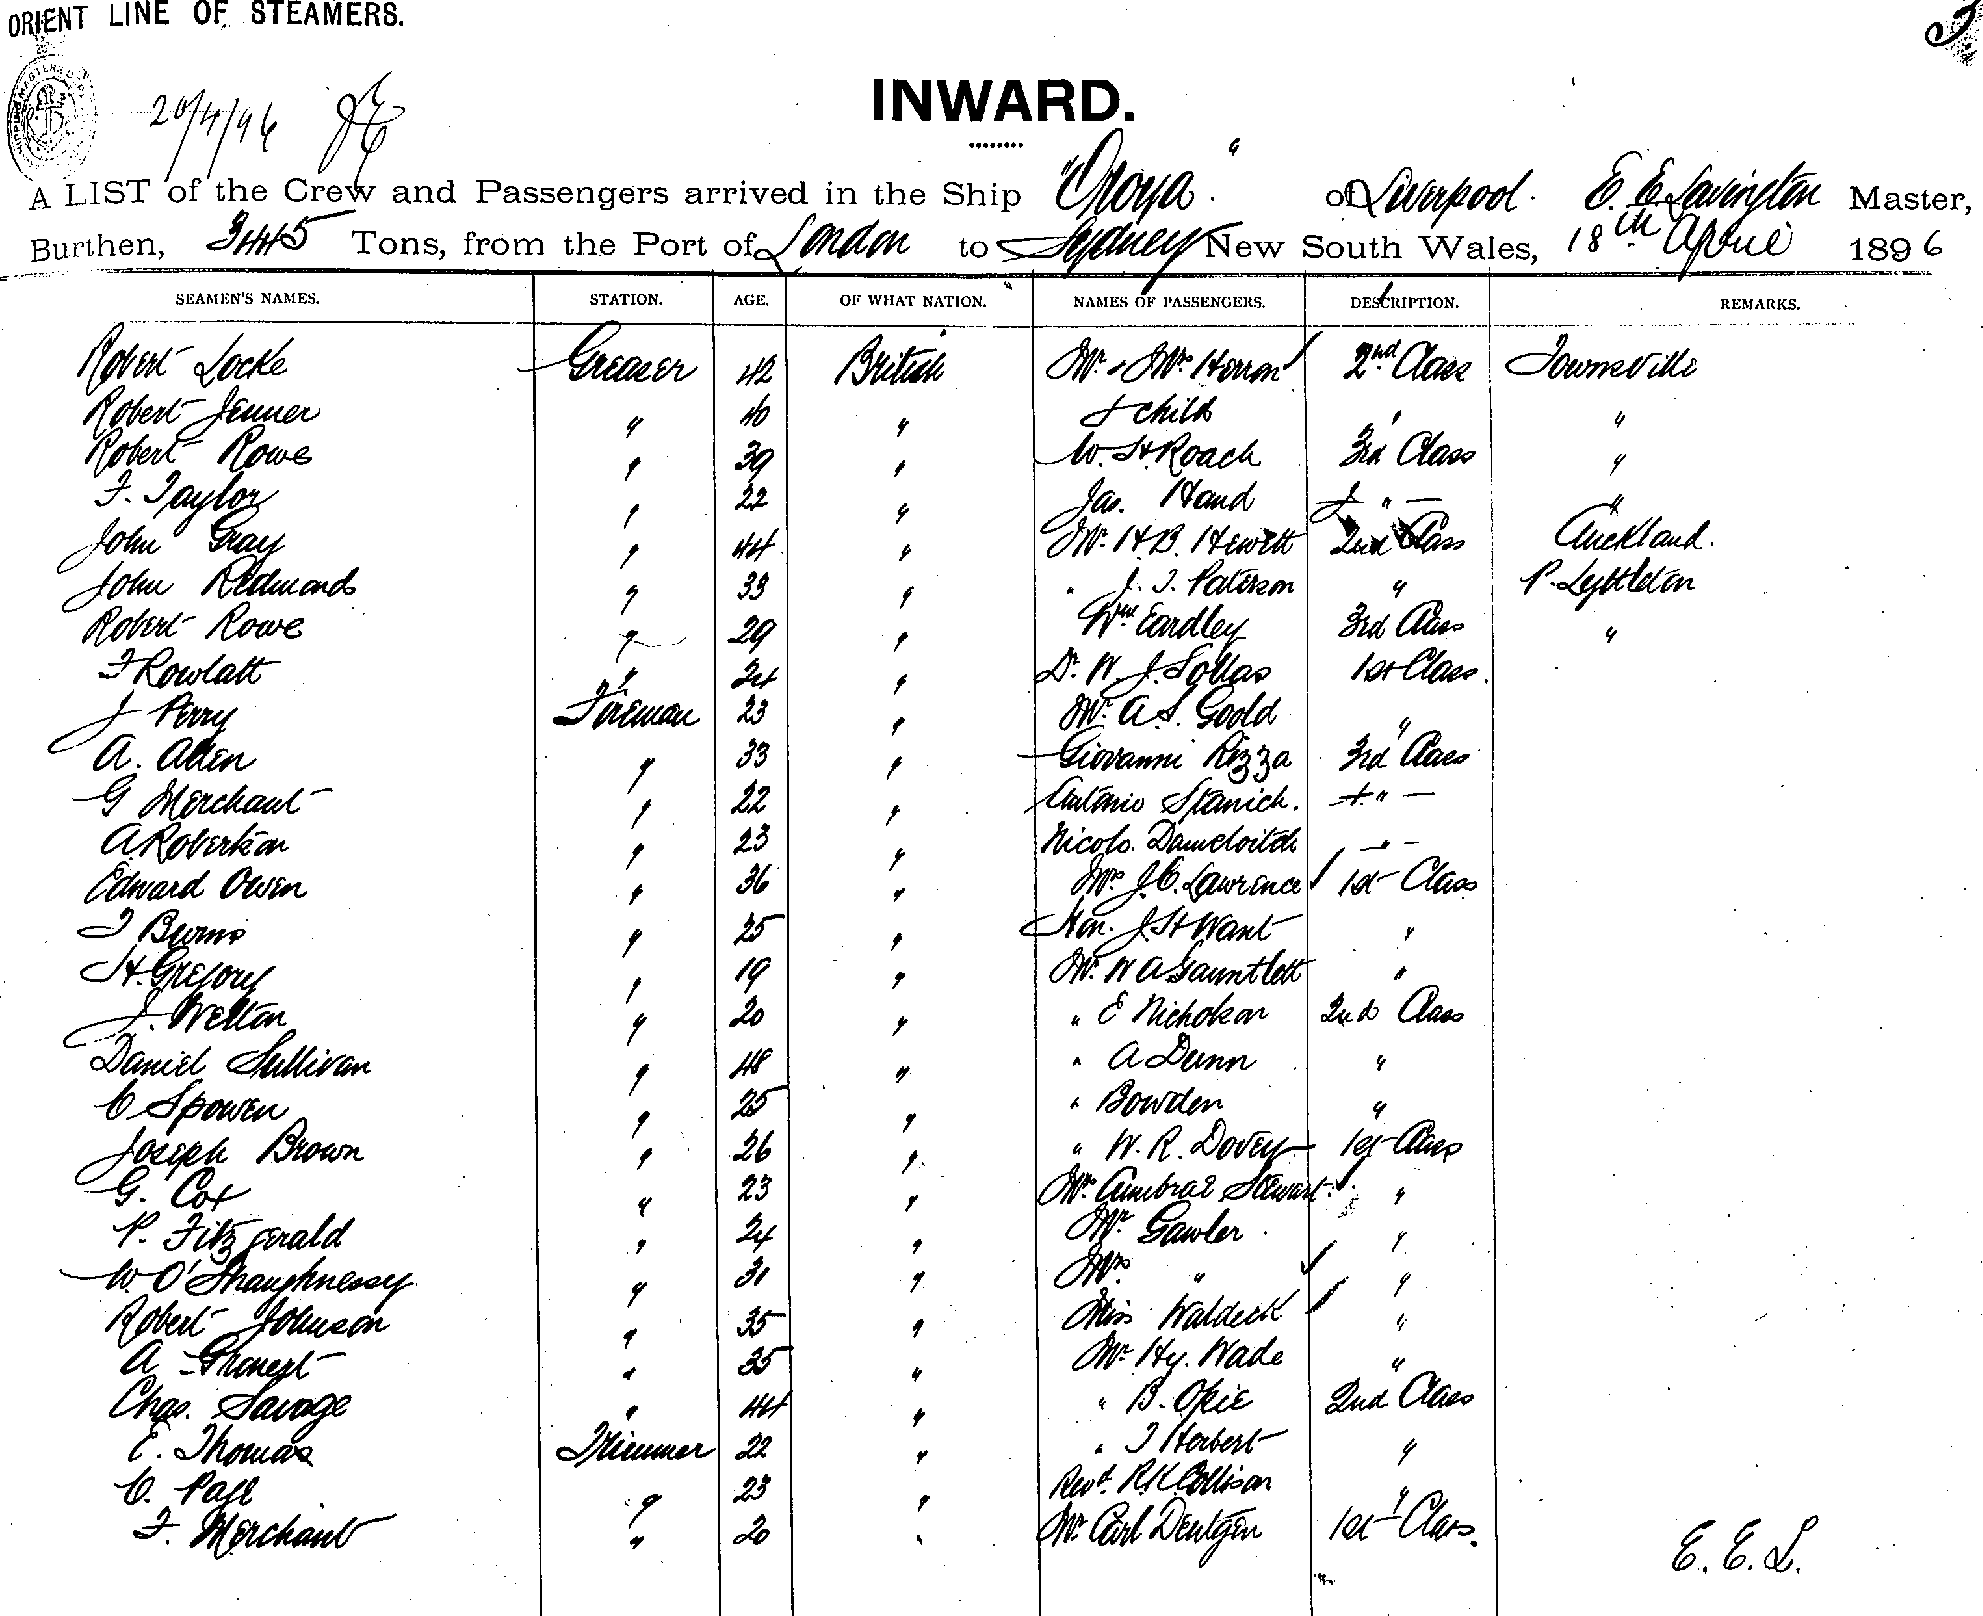 ORIENT LINE OF STEAMERS.
20/4/96
INWARD.
A LIST of the Crew and Passengers arrived in the Ship "Oroya" of Liverpool. E. E. Lavington Master,
Burthen, 3445 Tons, from the Port of London to Sydney New South Wales, 18th April 1896
SEAMEN'S NAMES. STATION. AGE. OF WHAT NATION. NAMES OF PASSENGERS. DESCRIPTION. REMARKS.
Robert Locke Greaser 42 British Mr. & Mrs Herron 2nd Class Townsville
Robert Jenner " 40 " & child "
Robert Rowe " 39 " W. H. Roach 3rd Class "
F. Taylor " 22 " Jas. Hand " "
John Gray " 44 " Mr. H. B. Hewett 2nd Class Auckland.
John Redmonds " 33 " " J. T. Paterson " P. Lyttleton
Robert Rowe " 29 " Wm Eardley 3rd Class "
F Rowlatt " 24 " Dr. W J. Sollas 1st Class.
J Perry Fireman 23 " Mr. A. S. Goold "
A. Allen " 33 " Giovanni Rizza 3rd Class
G Merchant " 22 " Antonio Stanich. "
A. Robertson " 23 " Nicolo. "
Edward Owen " 36 " Mrs J. C. Lawrence 1st Class
T Burns " 25 " Hon. J. H Want "
H. Gregory " 19 " Mr. W A Gauntlett "
J. Welton " 20 " " E Nicholson 2nd Class
Daniel Sullivan " 48 " " A Dunn "
C Spowen " 25 " " Bowden "
Joseph Brown " 26 " " W. R. Dovey 1st Class
G. Cox " 23 " Stewart "
P. Fitzgerald " 24 " Mr Gawler "
W. O'Shaughnessy " 31 " Mrs " "
Robert Johnson " 35 " Miss Waldeck "
A " 35 " Mr. Hy. Wade "
Chas. Savage " 44 " " B. Opie 2nd Class
E. Thomas Trimmer 22 " " T Herbert "
C. Page " 23 " Revd. R. K. Collison "
F. Merchant " 20 " Mr. Carl Deutgen 1st Class.
E. E. L.